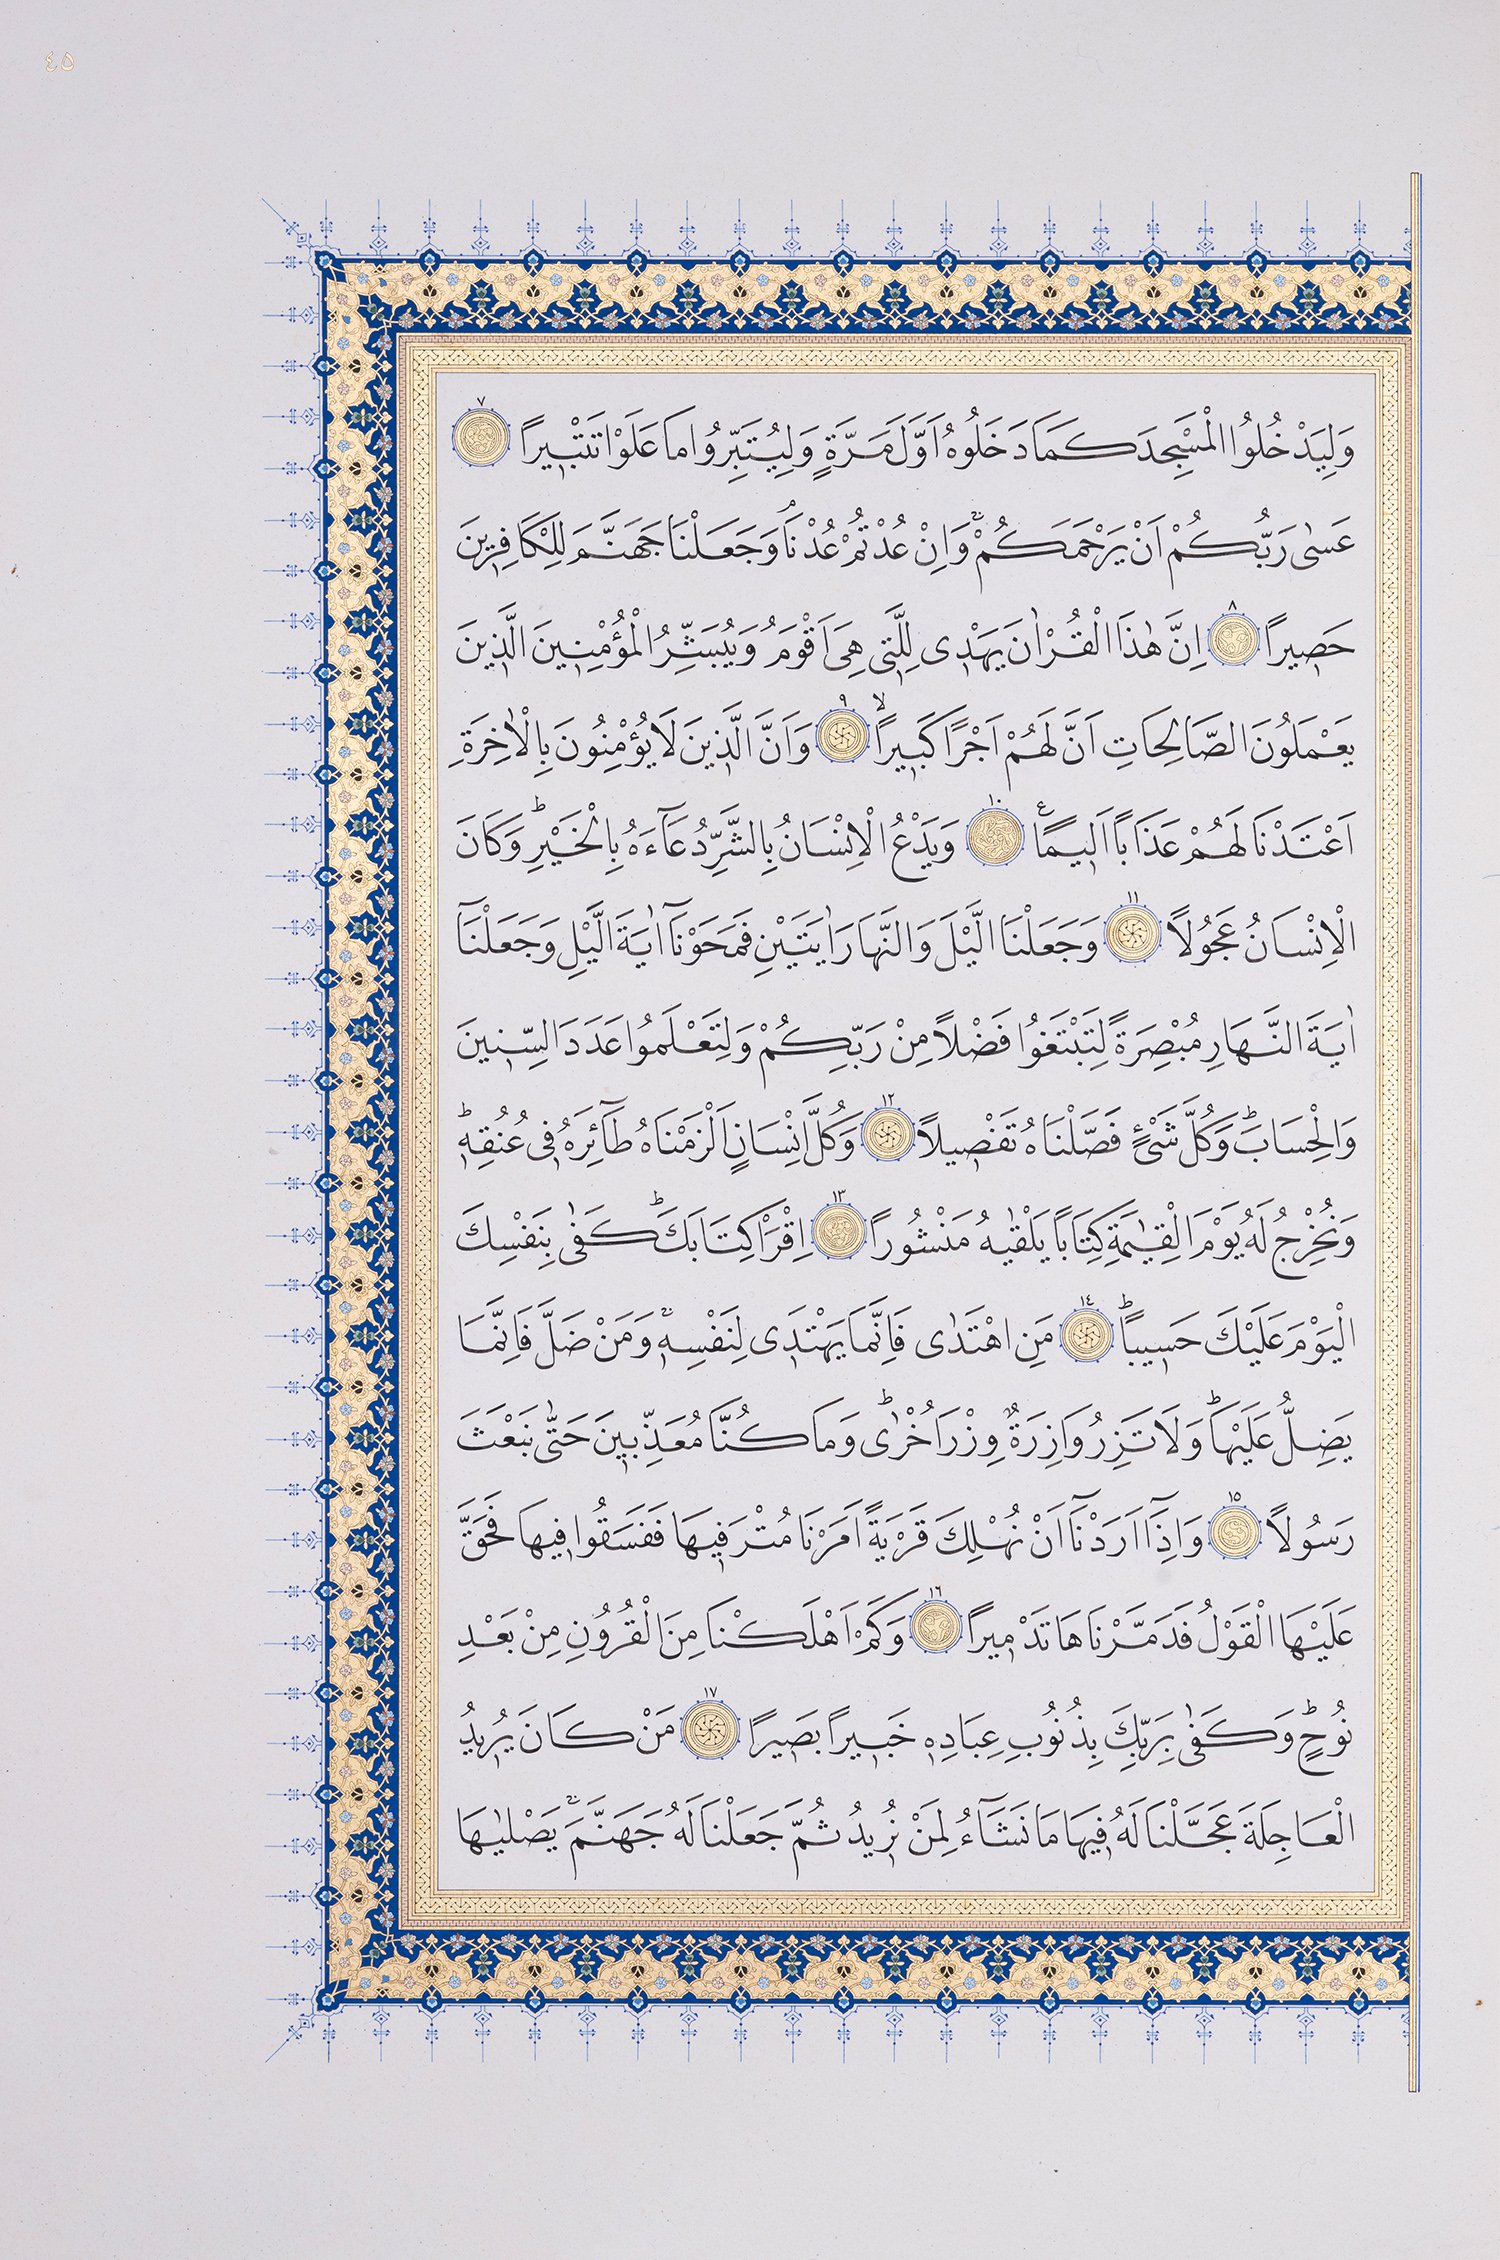 ٤٥
وَلِيَدْخُلُوا الْمَسْجِدَ كَمَا دَخَلُوهُ اَوَّلَ مَرَّةٍ وَلِيُتَبِّرُوا مَا عَلَوْا تَتْبِيرًا ٧
عَسٰى رَبُّكُمْ اَنْ يَرْحَمَكُمْ وَاِنْ عُدْتُمْ عُدْنَاۢ وَجَعَلْنَا جَهَنَّمَ لِلْكَافِرِينَ
حَصِيرًا ٨ اِنَّ هٰذَا الْقُرْاٰنَ يَهْدِى لِلَّتِى هِىَ اَقْوَمُ وَيُبَشِّرُ الْمُؤْمِنِينَ الَّذِينَ
يَعْمَلُونَ الصَّالِحَاتِ اَنَّ لَهُمْ اَجْرًا كَبِيرًاۙ ٩ وَاَنَّ الَّذِينَ لَا يُؤْمِنُونَ بِالْاٰخِرَةِ
اَعْتَدْنَا لَهُمْ عَذَابًا اَلِيمًا ع ١٠ وَيَدْعُ الْاِنْسَانُ بِالشَّرِّ دُعَآءَهُ بِالْخَيْرِؕ وَكَانَ
الْاِنْسَانُ عَجُولًا ١١ وَجَعَلْنَا الَّيْلَ وَالنَّهَارَ اٰيَتَيْنِ فَمَحَوْنَآ اٰيَةَ الَّيْلِ وَجَعَلْنَآ
اٰيَةَ النَّهَارِ مُبْصِرَةً لِتَبْتَغُوا فَضْلًا مِنْ رَبِّكُمْ وَلِتَعْلَمُوا عَدَدَ السِّنِينَ
وَالْحِسَابَؕ وَكُلَّ شَىْءٍ فَصَّلْنَاهُ تَفْصِيلًا ١٢ وَكُلَّ اِنْسَانٍ اَلْزَمْنَاهُ طَآئِرَهُ فِى عُنُقِهِؕ
وَنُخْرِجُ لَهُ يَوْمَ الْقِيٰمَةِ كِتَابًا يَلْقٰيهُ مَنْشُورًا ١٣ اِقْرَاْ كِتَابَكَؕ كَفٰى بِنَفْسِكَ
الْيَوْمَ عَلَيْكَ حَسِيبًاؕ ١٤ مَنِ اهْتَدٰى فَاِنَّمَا يَهْتَدِى لِنَفْسِهِ وَمَنْ ضَلَّ فَاِنَّمَا
يَضِلُّ عَلَيْهَاؕ وَلَا تَزِرُ وَازِرَةٌ وِزْرَ اُخْرٰىؕ وَمَا كُنَّا مُعَذِّبِينَ حَتّٰى نَبْعَثَ
رَسُولًا ١٥ وَاِذَآ اَرَدْنَآ اَنْ نُهْلِكَ قَرْيَةً اَمَرْنَا مُتْرَفِيهَا فَفَسَقُوا فِيهَا فَحَقَّ
عَلَيْهَا الْقَوْلُ فَدَمَّرْنَاهَا تَدْمِيرًا ١٦ وَكَمْ اَهْلَكْنَا مِنَ الْقُرُونِ مِنْ بَعْدِ
نُوحٍؕ وَكَفٰى بِرَبِّكَ بِذُنُوبِ عِبَادِهِ خَبِيرًا بَصِيرًا ١٧ مَنْ كَانَ يُرِيدُ
الْعَاجِلَةَ عَجَّلْنَا لَهُ فِيهَا مَا نَشَآءُ لِمَنْ نُرِيدُ ثُمَّ جَعَلْنَا لَهُ جَهَنَّمَ يَصْلٰيهَا